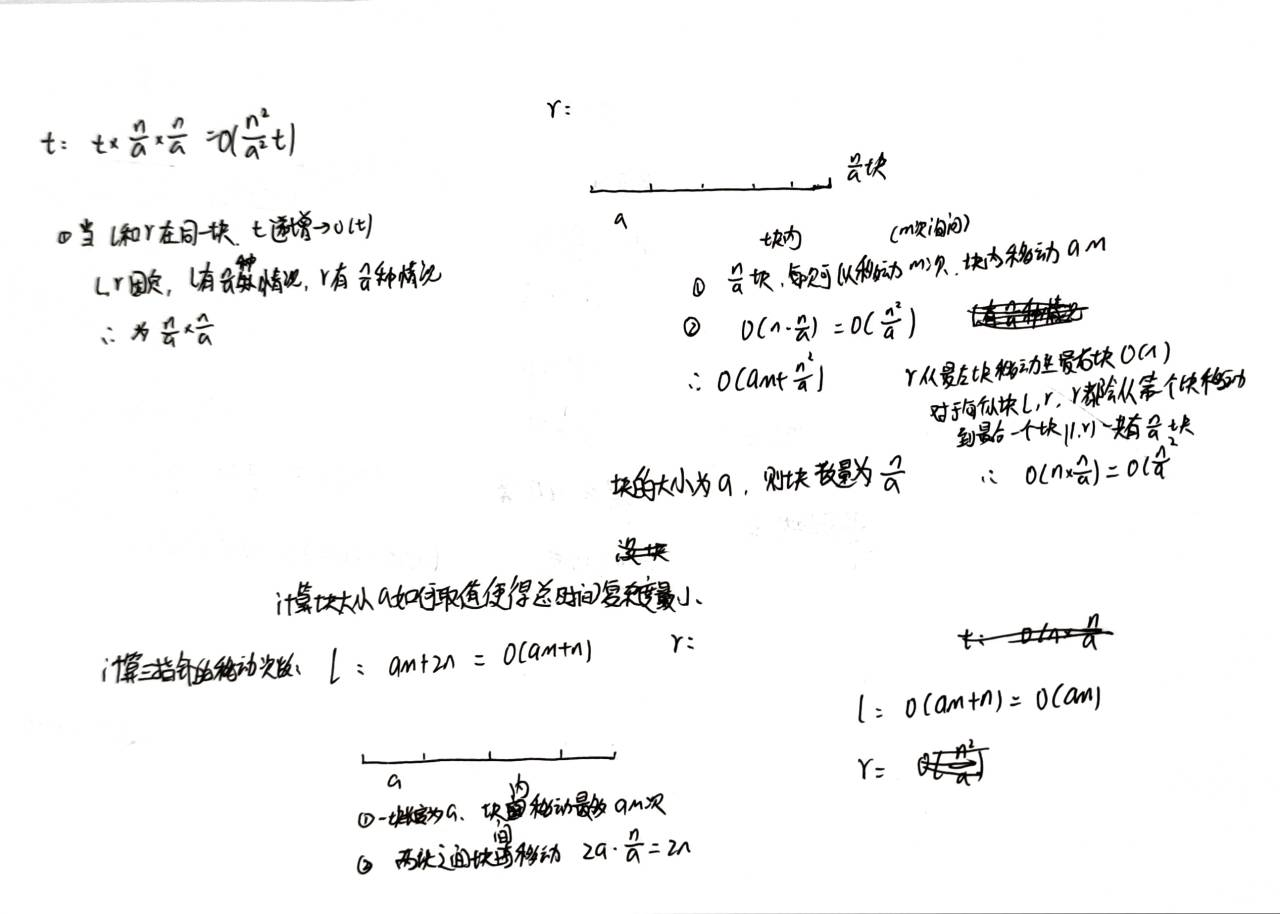 t: t× n/a × n/a = O(n²/a² t)
① 当 l和r在同一块, t递增→O(t)
l,r固定, l有n/a种情况, r有n/a种情况
∴ 为 n/a × n/a
r:
n/a块
a
块内 (m次询问)
① n/a块, 每次可以移动m次, 块内移动am
② O(n·n/a) = O(n²/a)
∴ O(am+n²/a)
r从最左块移动至最右块O(n)
对于每个块l,r, r都会从第一个块移动
到最后一个块(l,r)一共有n/a块
∴ O(n×n/a) = O(n²/a
块的大小为a, 则块数量为n/a
计算块大小a如何取值使得总时间复杂度最小、
计算三指针的移动次数: l: am+2n = O(am+n)
r:
l: O(am+n) = O(am)
r=
a
①一块长度为a、块内移动最多am次
② 两块之间块间移动 2a·n/a=2n